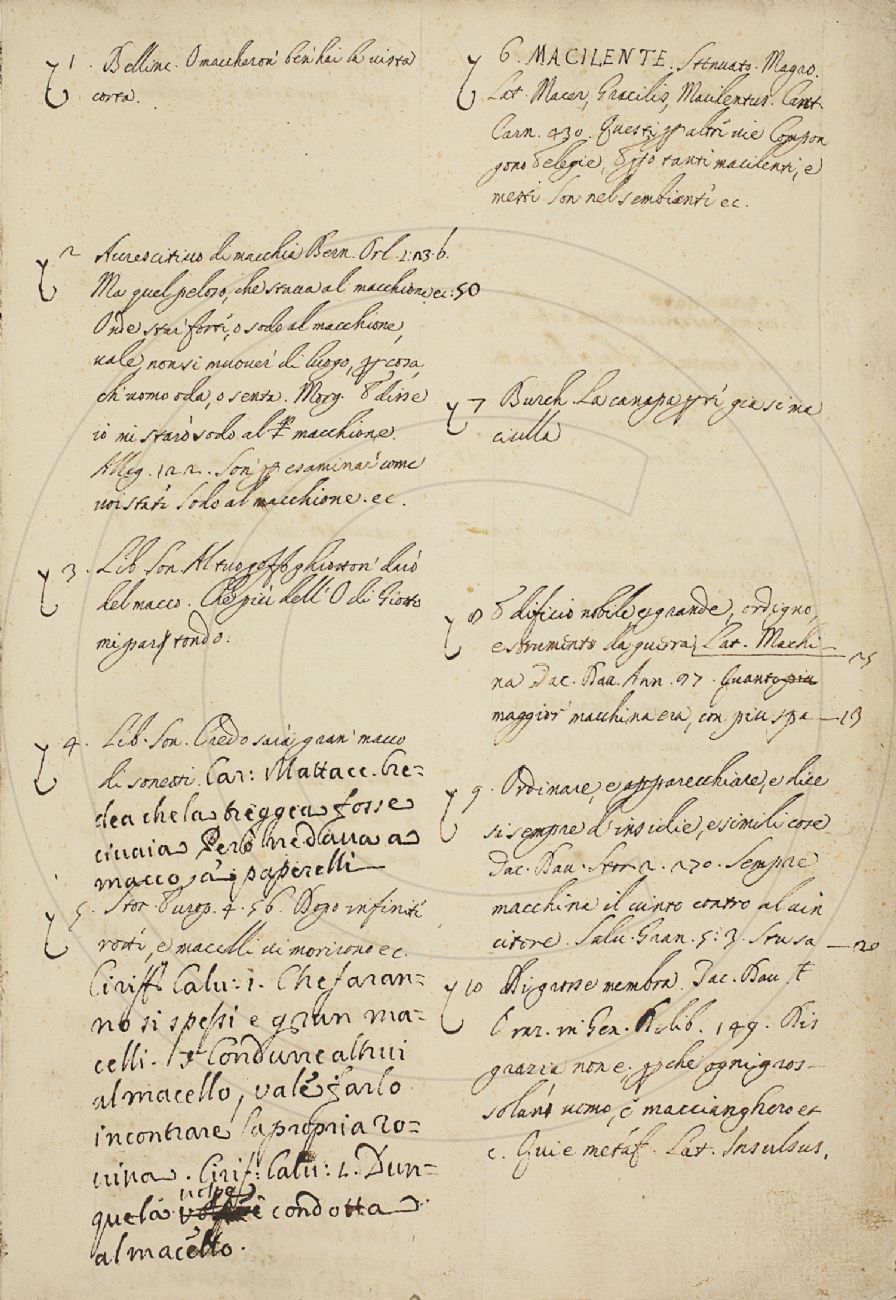 1. Bellinc. O maccheron' ben' hai la vista
corta.
2 Accrescitivo di macchia Bern. Orl.
Ma quel peloso, che stava al macchione ec. 50
Onde star forti, o sodo al macchione,
vale, non si muover' di luogo, p cosa
ch' uomo oda, o senta. Morg. E disse
io mi starò sodo al macchione.
Alleg. 122. Son' p esaminar' come
voi stati sodo al macchione. ec.
3. Lib. Son. Al tuo ghiotton' darò
del macco. Che più dell' O di Giotto
mi par tondo.
4. Lib. Son. Credo sarà gran' macco
di sonetti. Car: Mattacc. Cre=
dea che la treggea fosse
civaia Però ne dava a
macco a i paperelli
5. Stor. Europ. 4. 56. Dopo infiniti
rotti, e macelli vi morirono ec.
Ciriff. Calu: 1. Che faran=
no si spessi e gran ma=
celli. Condurre altrui
al macello, vale farlo
incontrare la propria ro=
vina. Cirif: Calu: 1. Dun=
que la volpe è condotta
al macello.
6. MACILENTE. Stenuato. Magro.
Lat. Macer, Gracilis, Macilentus. Cant.
Carn. 430. Questi p altri vie Compon
gono elegie, tanti macilenti, e
mesti son nel sembianti ec.
7 Burch. La canapa già si ma
ciulla
8 Edificio nobile e grande, ordigno,
e strumento da guerra, Lat. Machi- 25
na Tac. Dav. Ann. 97. Quanto più
maggior' macchina era, con piu spa 13
9. Ordinare, e apparecchiare, e dice
si sempre d' insidie, e simili cose
Tac. Dav. Stor. 2. 270. Sempre
macchina il vinto contro al vin
citore. Salv. Gran. 5. 3. Stusa 20
10 Di grosse membra. Tac. Dav.
in Gen. lib. 149. Dis
grazia non e, p che ogni gros-
solano uomo, è maccianghero et
c. Qui e metaf. Lat. Insulsus,